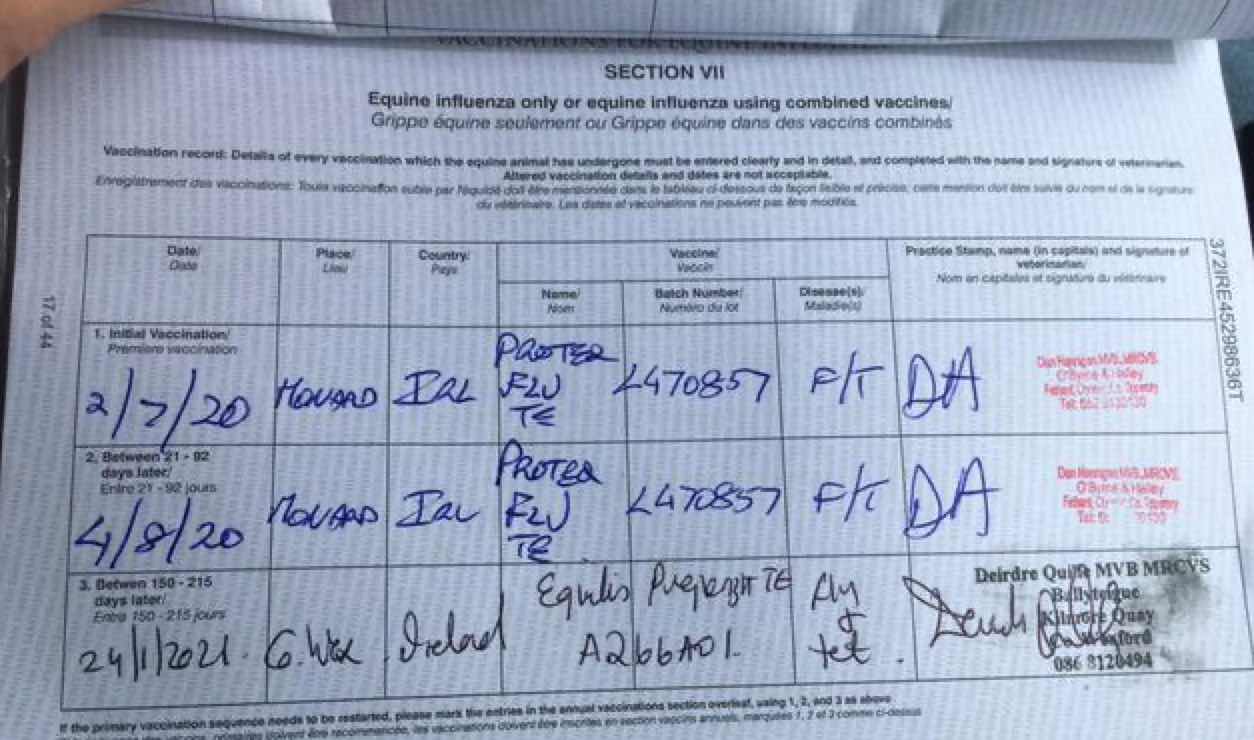 VACCINATIONS FOR EQUINE
SECTION VII
Equine influenza only or equine influenza using combined vaccines/
Grippe équine seulement ou Grippe équine dans des vaccins combinés
Vaccination record: Details of every vaccination which the equine animal has undergone must be entered clearly and in detail, and completed with the name and signature of veterinarian.
Altered vaccination details and dates are not acceptable.
Enregistrement des vaccinations: Toute vaccination subie par l'équidé doit être mentionnée dans le tableau ci-dessous de façon lisible et précise, cette mention doit être suivie du nom et de la signature
du vétérinaire. Les dates et vaccinations ne peuvent pas être modifiés.
Date/ Place/ Country/ Vaccine/ Practice Stamp, name (in capitals) and signature of
Date Lieu Pays Vaccin veterinarian/
Nom en capitales et signature du vétérinaire
Name/ Batch Number/ Disease(s)/
Nom Numéro du lot Maladie(s)
17 of 44
372IRE45298636T
1. Initial Vaccination/
Premiere vaccination
2/7/20 IRL PROTEQ FLU TE L470857 F/T DA
MVB, MRCVS
2. Between 21 - 92
days later/
Entre 21 - 92 jours
4/8/20 IRL PROTEQ FLU TE L470857 F/T DA
MVB, MRCVS
3. Betwen 150 - 215
days later/
Entre 150 - 215 jours
24/1/2021. Ireland Equilis Prequenza TE Flu & tet.
A266A01.
Deirdre Quiffe MVB MRCVS
Ballyteigue
Kilmore Quay
Co. Wexford
086 8120494
If the primary vaccination sequence needs to be restarted, please mark the entries in the annual vaccinations section overleaf, using 1, 2, and 3 as above
les vaccinations doivent être inscrites en section vaccins annuels, marquées 1, 2 et 3 comme ci-dessus